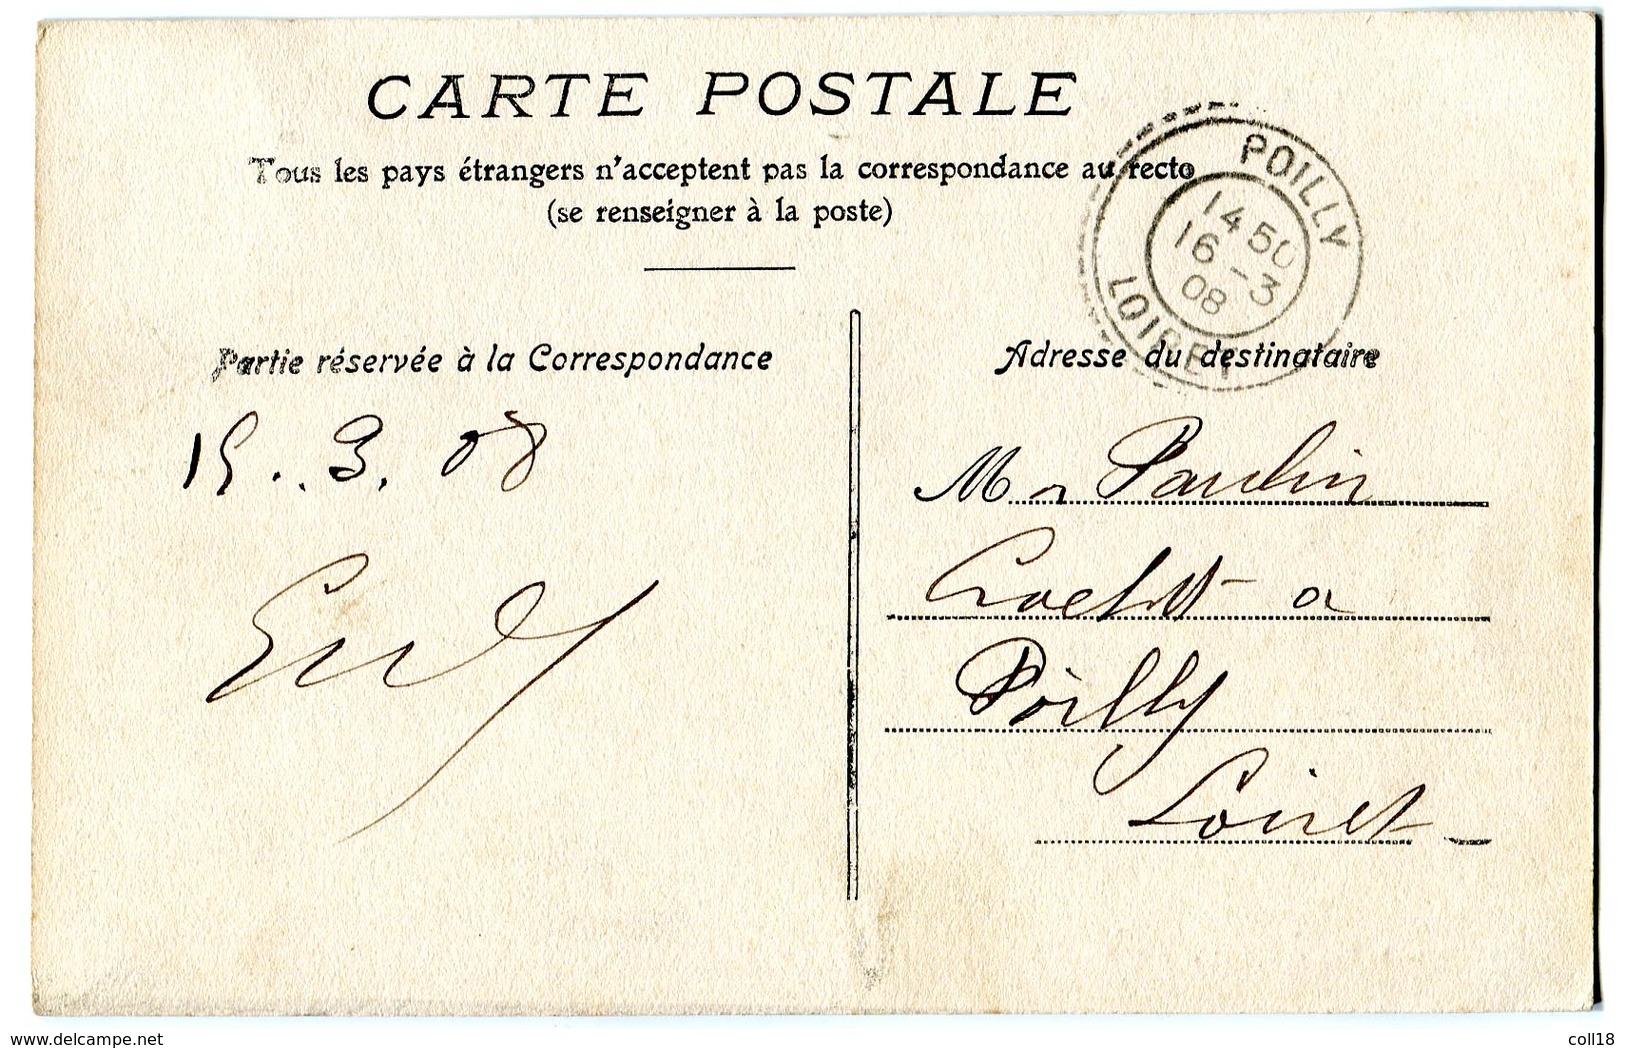 CARTE POSTALE
Tous les pays étrangers n'acceptent pas la correspondance au recto
(se renseigner à la poste)
POILLY
14 50
16 - 3
08
LOIRET
Partie réservée à la Correspondance
Adresse du destinataire
15. 3. 08
M r Paulin
a
Poilly
Loiret
delcampe.net
coll18